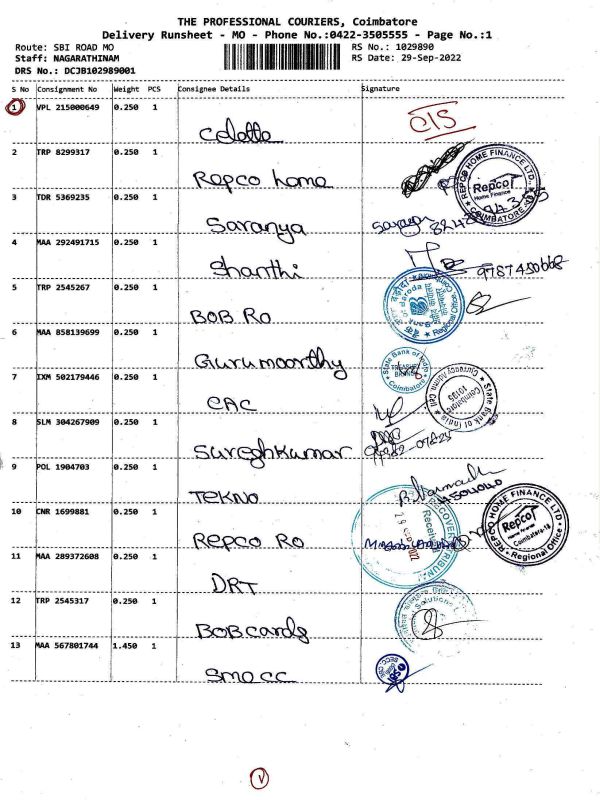 THE PROFESSIONAL COURIERS, Coimbatore
Delivery Runsheet - MO - Phone No.:0422-3505555 - Page No.:1
Route: SBI ROAD MO
RS No.: 1029890
Staff: NAGARATHINAM
RS Date: 29-Sep-2022
DRS No.: DCJB102989001
S No Consignment No Weight PCS Consignee Details Signature
1 VPL 215000649 0.250 1
2 TRP 8299317 0.250 1
Repco home
REPCO HOME FINANCE LTD.
Repco
Home Finance
COIMBATORE
3 TDR 5369235 0.250 1
Saranya
4 MAA 292491715 0.250 1
Shanthi
9787450668
5 TRP 2545267 0.250 1
BOB RO
6 MAA 858139699 0.250 1
Gurumoorthy
State Bank of India
Coimbatore
7 IXM 502179446 0.250 1
CAC
State Bank of India
Currency Admn. Cell
Coimbatore
8 SLM 304267909 0.250 1
Sureshkumar
9 POL 1904703 0.250 1
TEKNO
10 CNR 1699881 0.250 1
Repco RO
REPCO HOME FINANCE LTD
Repco
Home Finance
Coimbatore-18
Regional Office
11 MAA 289372608 0.250 1
DRT
12 TRP 2545317 0.250 1
BOBcards
13 MAA 567801744 1.450 1
SMOCC